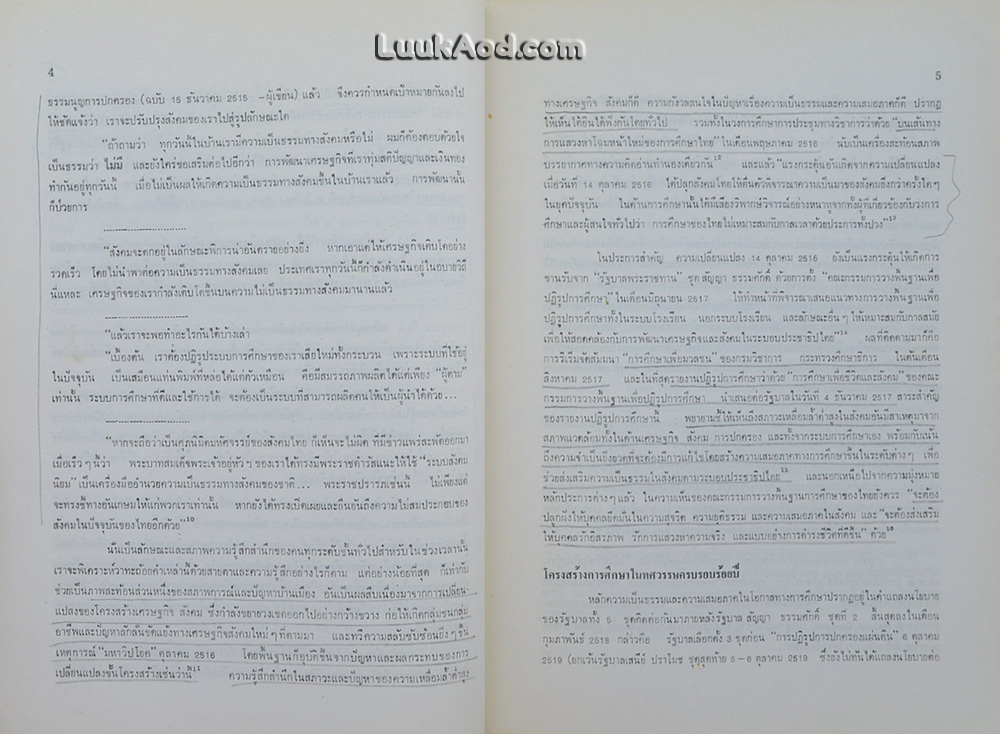 LuukAod.com
4
ธรรมนูญการปกครอง (ฉบับ 15 ธันวาคม 2515 -ผู้เขียน) แล้ว จึงควรกำหนดเป้าหมายกันลงไป
ให้ชัดแจ้งว่า เราจะปรับปรุงสังคมของเราไปสู่รูปลักษณะใด
"ถ้าถามว่า ทุกวันนี้ในบ้านเรามีความเป็นธรรมทางสังคมหรือไม่ ผมก็ต้องตอบด้วยใจ
เป็นธรรมว่า ไม่มี และยังใคร่ขอเสริมต่อไปอีกว่า การพัฒนาเศรษฐกิจที่เราทุ่มสติปัญญาและเงินทอง
ทำกันอยู่ทุกวันนี้ เมื่อไม่เป็นผลให้เกิดความเป็นธรรมทางสังคมขึ้นในบ้านเราแล้ว การพัฒนานั้น
ก็ป่วยการ
"สังคมจะตกอยู่ในลักษณะพิการน่าอันตรายอย่างยิ่ง หากเอาแต่ให้เศรษฐกิจเติบโตอย่าง
รวดเร็ว โดยไม่นำพาต่อความเป็นธรรมทางสังคมเลย ประเทศเราทุกวันนี้ก็กำลังดำเนินอยู่ในอบายวิถี
นี่แหละ เศรษฐกิจของเรากำลังเติบโตขึ้นบนความไม่เป็นธรรมทางสังคมมานานแล้ว
"แล้วเราจะพอทำอะไรกันได้บ้างเล่า
"เบื้องต้น เราต้องปฏิรูประบบการศึกษาของเราเสียใหม่ทั้งกระบวน เพราะระบบที่ใช้อยู่
ในปัจจุบัน เป็นเสมือนแท่นพิมพ์ที่หล่อได้แต่ตัวเหมือน คือมีสมรรถภาพผลิตได้แต่เพียง "ผู้ตาม"
เท่านั้น ระบบการศึกษาที่ดีและใช้การได้ จะต้องเป็นระบบที่สามารถผลิตคนให้เป็นผู้นำได้ด้วย...
"หากจะถือว่าเป็นศุภนิมิตมหัศจรรย์ของสังคมไทย ก็เห็นจะไม่ผิด ที่มีข่าวแพร่สะพัดออกมา
เมื่อเร็วๆ นี้ว่า พระบาทสมเด็จพระเจ้าอยู่หัวฯ ของเราได้ทรงมีพระราชดำรัสแนะให้ใช้ "ระบบสังคม
นิยม" เป็นเครื่องมืออำนวยความเป็นธรรมทางสังคมของชาติ... พระราชปรารภเช่นนี้ ไม่เพียงแต่
จะทรงชี้ทางอันเกษมให้แก่พวกเราเท่านั้น หากยังได้ทรงเปิดเผยและยืนยันถึงความไม่สมประกอบของ
สังคมในปัจจุบันของไทยอีกด้วย"10
นั่นเป็นลักษณะและสภาพความรู้สึกสำนึกของคนทุกระดับชั้นทั่วไปสำหรับในช่วงเวลานั้น
เราจะพิเคราะห์วาทะถ้อยคำเหล่านี้ด้วยสายตาและความรู้สึกอย่างไรก็ตาม แต่อย่างน้อยที่สุด ก็เท่ากับ
ช่วยเป็นภาพสะท้อนส่วนหนึ่งของสภาพการณ์และปัญหาบ้านเมือง อันเป็นผลสืบเนื่องมาจากการเปลี่ยน-
แปลงของโครงสร้างเศรษฐกิจ สังคม ซึ่งกำลังขยายวงเขตออกไปอย่างกว้างขวาง ก่อให้เกิดกลุ่มชนกลุ่ม
อาชีพและปัญหาลักลั่นขัดแย้งทางเศรษฐกิจสังคมใหม่ๆ ที่ตามมา และทวีความสลับซับซ้อนยิ่งๆ ขึ้น
เหตุการณ์ "มหาวิปโยค" ตุลาคม 2516 โดยพื้นฐานก็อุบัติขึ้นจากปัญหาและผลกระทบของการ
เปลี่ยนแปลงขั้นโครงสร้างเช่นว่านี้"11 ความรู้สึกสำนึกในสภาวะและปัญหาของความเหลื่อมล้ำต่ำสูง
5
ทางเศรษฐกิจ สังคมก็ดี ความกังวลสนใจในปัญหาเรื่องความเป็นธรรมและความเสมอภาคก็ดี ปรากฏ
ให้เห็นได้ยินได้ฟังกันโดยทั่วไป รวมทั้งในวงการศึกษาการประชุมทางวิชาการว่าด้วย "บนเส้นทาง
การแสวงหาโฉมหน้าใหม่ของการศึกษาไทย" ในเดือนพฤษภาคม 2516 นับเป็นเครื่องสะท้อนสภาพ
บรรยากาศทางความคิดอ่านทำนองเดียวกัน12 และแล้ว "แรงกระตุ้นอันเกิดจากความเปลี่ยนแปลง
เมื่อวันที่ 14 ตุลาคม 2516 ได้ปลุกสังคมไทยให้ตื่นตัวพิจารณาความเป็นมาของสังคมยิ่งกว่าครั้งใดๆ
ในยุคปัจจุบัน ในด้านการศึกษานั้นได้มีเสียงวิพากษ์วิจารณ์อย่างหนาหูจากทั้งผู้ที่เกี่ยวข้องกับวงการ
ศึกษาและผู้สนใจทั่วไปว่า การศึกษาของไทยไม่เหมาะสมกับกาลเวลาด้วยประการทั้งปวง"13
ในประการสำคัญ ความเปลี่ยนแปลง 14 ตุลาคม 2516 ยังเป็นแรงกระตุ้นให้เกิดการ
ขานรับจาก "รัฐบาลพระราชทาน" ชุด สัญญา ธรรมศักดิ์ ด้วยการตั้ง "คณะกรรมการวางพื้นฐานเพื่อ
ปฏิรูปการศึกษา" ในเดือนมิถุนายน 2517 ให้ทำหน้าที่พิจารณาเสนอแนวทางการวางพื้นฐานเพื่อ
ปฏิรูปการศึกษาทั้งในระบบโรงเรียน นอกระบบโรงเรียน และลักษณะอื่นๆ ให้เหมาะสมกับกาลสมัย
เพื่อให้สอดคล้องกับการพัฒนาเศรษฐกิจและสังคมในระบอบประชาธิปไตย"14 ผลที่ติดตามมาก็คือ
การริเริ่มจัดสัมมนา "การศึกษาเพื่อมวลชน" ของกรมวิชาการ กระทรวงศึกษาธิการ ในต้นเดือน
สิงหาคม 2517 และในที่สุดรายงานปฏิรูปการศึกษาว่าด้วย "การศึกษาเพื่อชีวิตและสังคม" ของคณะ
กรรมการวางพื้นฐานเพื่อปฏิรูปการศึกษา นำเสนอต่อรัฐบาลในวันที่ 4 ธันวาคม 2517 สาระสำคัญ
ของรายงานปฏิรูปการศึกษานี้ พยายามชี้ให้เห็นถึงสภาวะเหลื่อมล้ำต่ำสูงในสังคมอันมีสาเหตุมาจาก
สภาพแวดล้อมทั้งในด้านเศรษฐกิจ สังคม การปกครอง และทั้งจากระบบการศึกษาเอง พร้อมกับเน้น
ถึงความจำเป็นยิ่งยวดที่จะต้องมีการแก้ไขโดยสร้างความเสมอภาคทางการศึกษาขึ้นในระดับต่างๆ เพื่อ
ช่วยส่งเสริมความเป็นธรรมในสังคมตามระบอบประชาธิปไตย15 และนอกเหนือไปจากความมุ่งหมาย
หลักประการต่างๆ แล้ว ในความเห็นของคณะกรรมการวางพื้นฐานการศึกษาของไทยยังควร "จะต้อง
ปลูกฝังให้บุคคลยึดมั่นในความสุจริต ความยุติธรรม และความเสมอภาคในสังคม และ "จะต้องส่งเสริม
ให้บุคคลรักอิสรภาพ รักการแสวงหาความจริง และแบบอย่างการดำรงชีวิตที่ดีขึ้น" ด้วย16
โครงสร้างการศึกษาในทศวรรษครบรอบร้อยปี
หลักความเป็นธรรมและความเสมอภาคในโอกาสทางการศึกษาปรากฏอยู่ในคำแถลงนโยบาย
ของรัฐบาลทั้ง 5 ชุดติดต่อกันมาภายหลังรัฐบาล สัญญา ธรรมศักดิ์ ชุดที่ 2 สิ้นสุดลงในเดือน
กุมภาพันธ์ 2518 กล่าวคือ รัฐบาลเลือกตั้ง 3 ชุดก่อน "การปฏิรูปการปกครองแผ่นดิน" 6 ตุลาคม
2519 (ยกเว้นรัฐบาลเสนีย์ ปราโมช ชุดสุดท้าย 5-6 ตุลาคม 2519 ซึ่งยังไม่ทันได้แถลงนโยบายต่อ